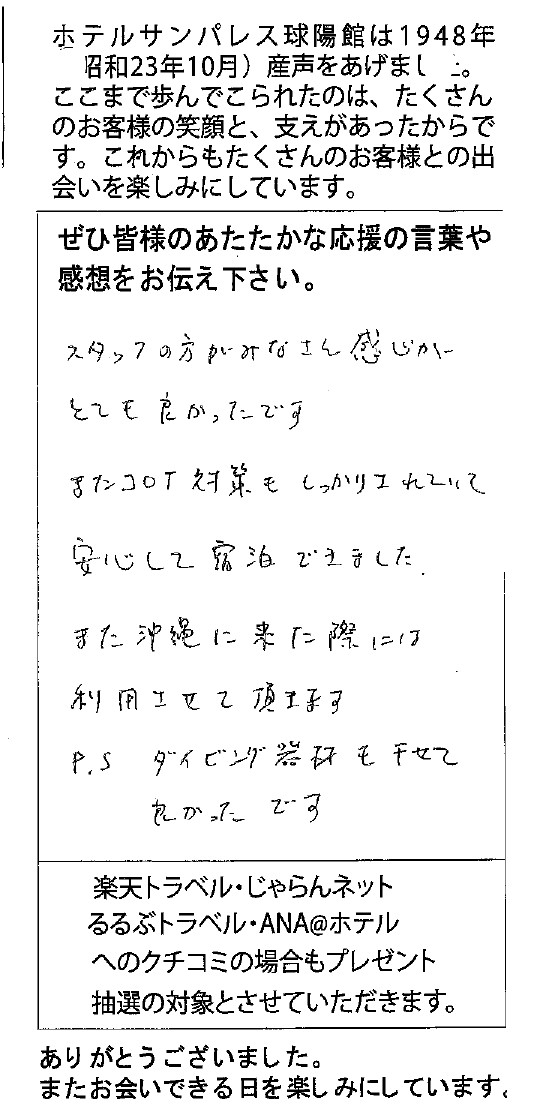 ホテルサンパレス球陽館は1948年
昭和23年10月）産声をあげまし 。
ここまで歩んでこられたのは、たくさん
のお客様の笑顔と、支えがあったからで
す。これからもたくさんのお客様との出
会いを楽しみにしています。
ぜひ皆様のあたたかな応援の言葉や
感想をお伝え下さい。
スタッフの方がみなさん感じが
とても良かったです
またコロナ対策もしっかりされていて
安心して宿泊できました.
また沖縄に来た際には
利用させて頂きます
P.S ダイビング器材も干せて
良かったです
楽天トラベル・じゃらんネット
るるぶトラベル・ANA@ホテル
へのクチコミの場合もプレゼント
抽選の対象とさせていただきます。
ありがとうございました。
またお会いできる日を楽しみにしています。